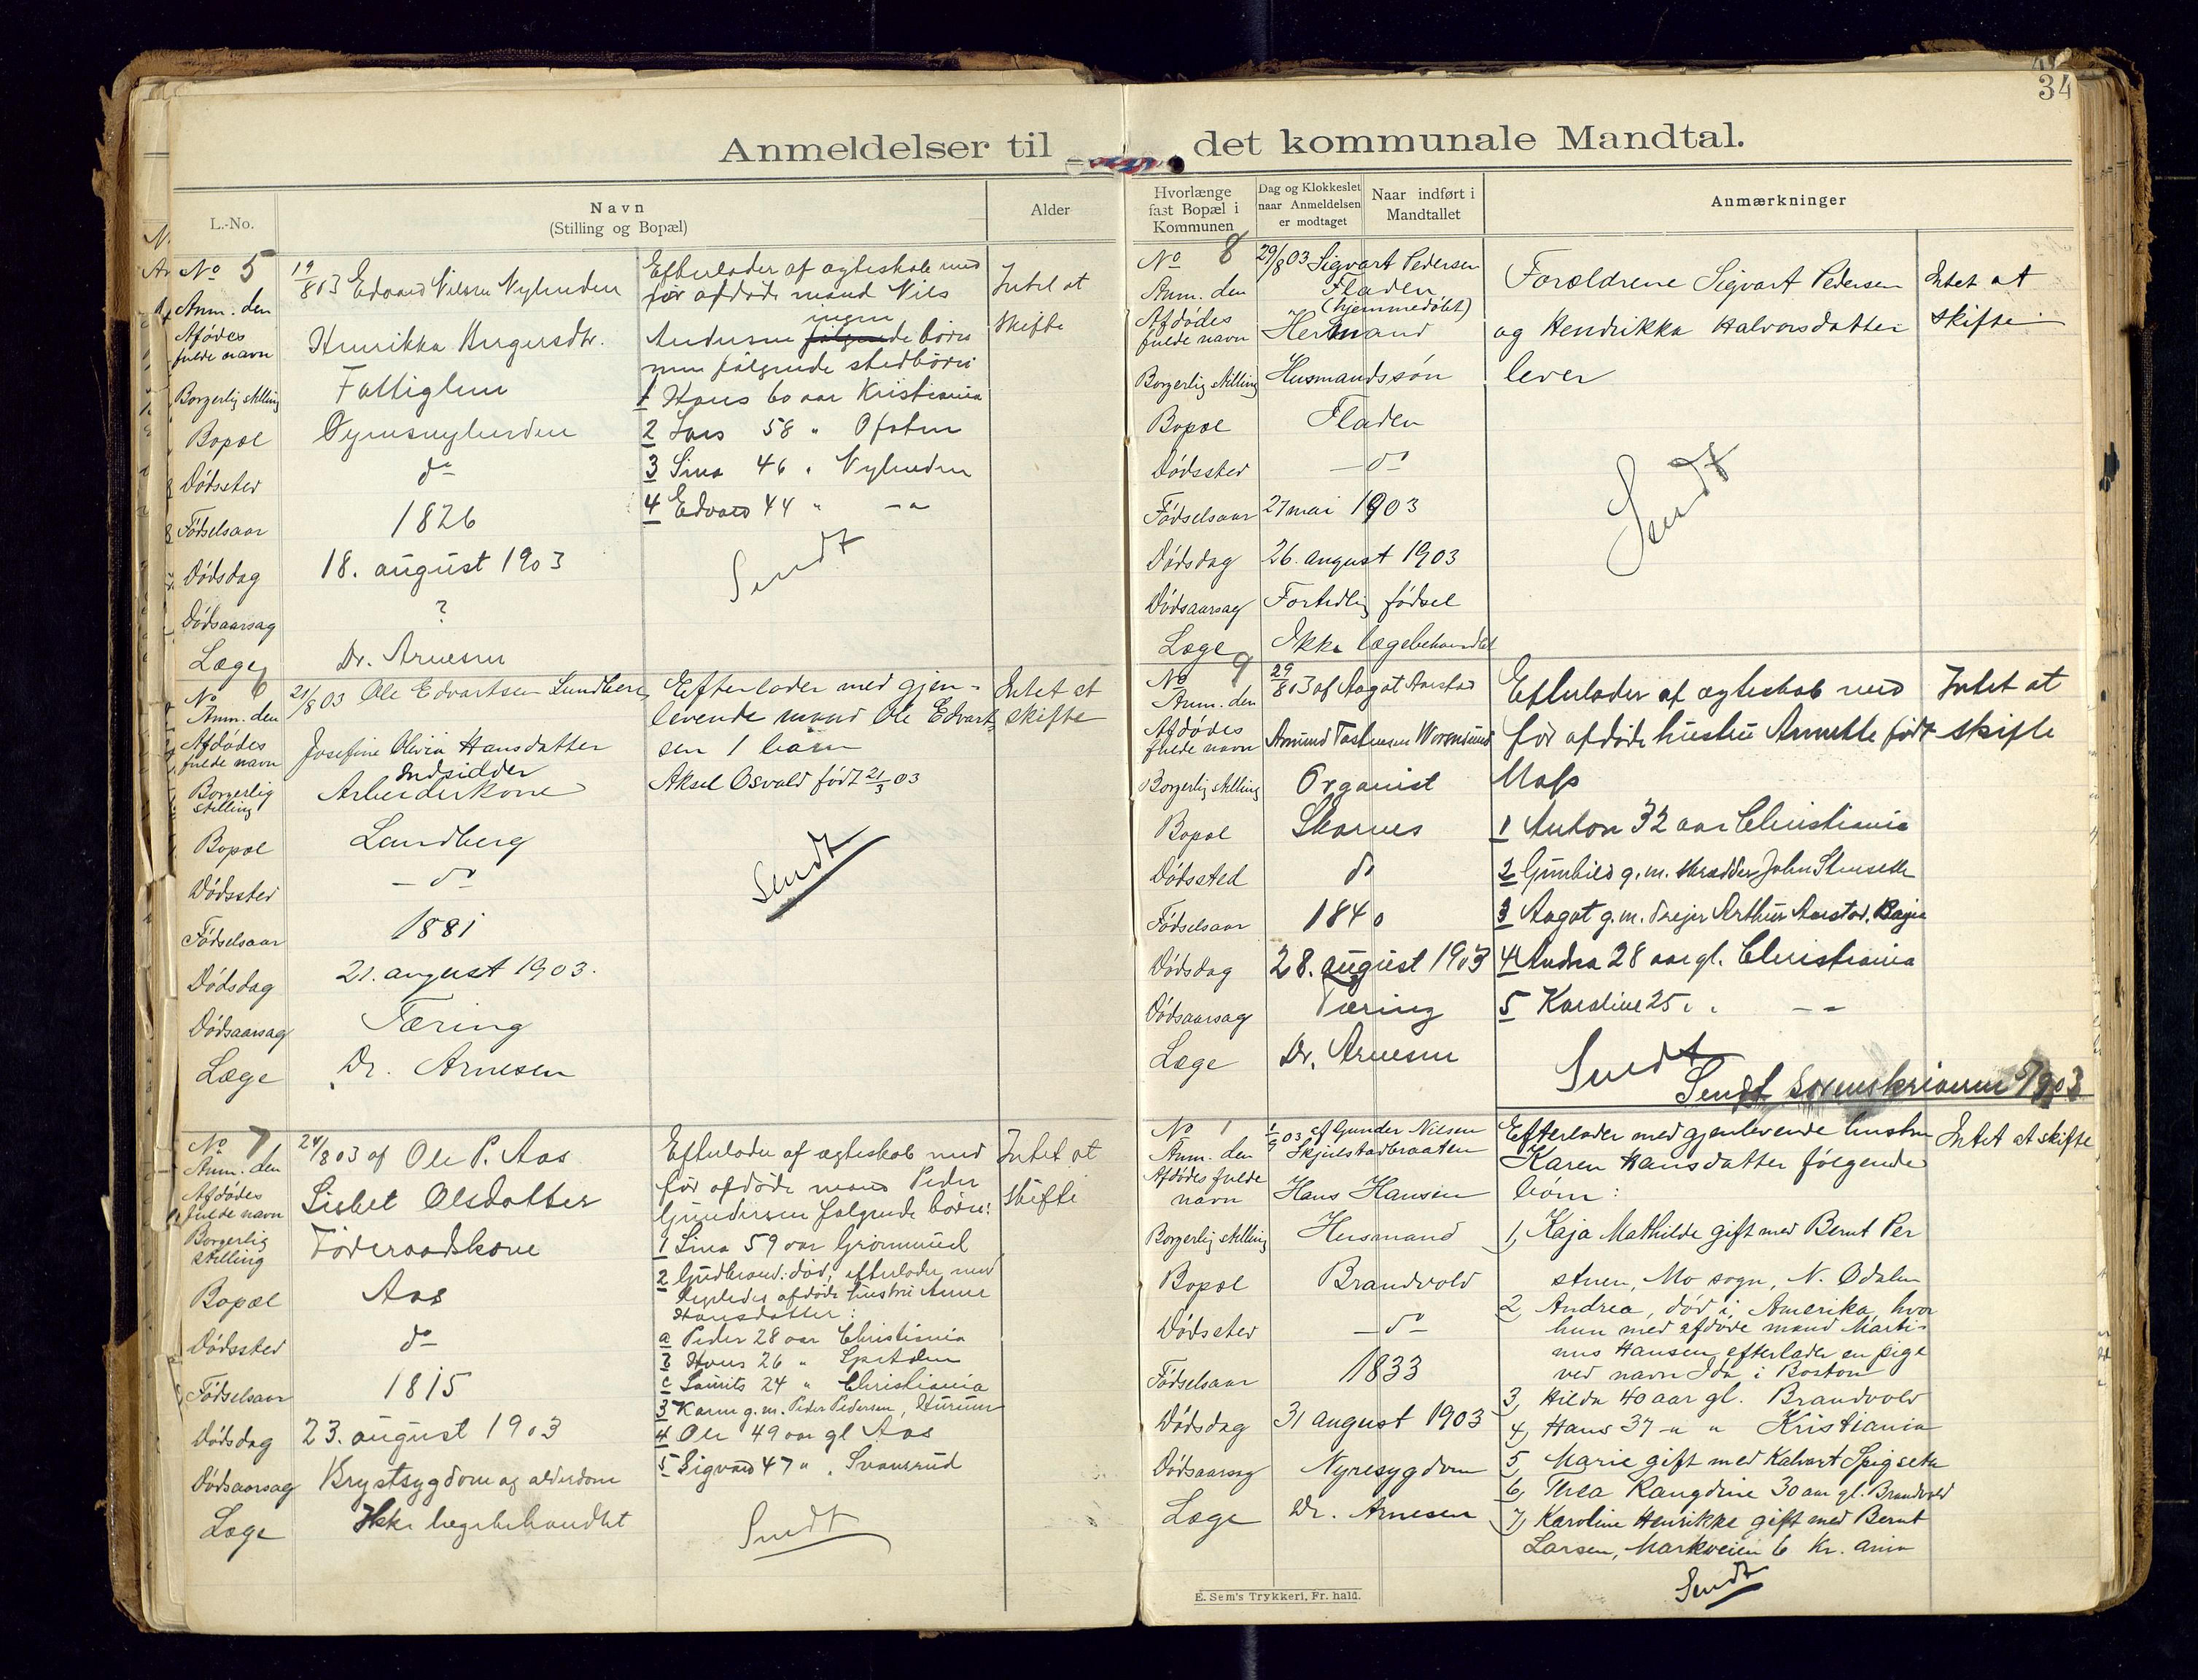 34
Anmeldelser til det kommunale Mandtal.
L.-No.
Navn
(Stilling og Bopæl)
Alder
No 5
Anm. den 19/8 03 Edvard Nilsen Nylænden
Afdødes fulde navn Henrikka
Borgerlig stilling Fattiglem
Bopæl
Dødssted do
Fødselsaar 1826
Dødsdag 18. august 1903
Dødsaarsag ?
Læge Dr. Arnesen
Efterlader af ægteskab med
før afdøde mand Nils
ingen
Andersen følgende børn
men følgende stedbørn
1 Hans 60 aar Kristiania
2 Lars 58 "
3 Lina 46 " Nylænden
4 Edvard 44 " - " -
Sendt
Intet at
skifte
No 6
Anm. den 21/8 03 Ole Edvartsen Lundberg
Afdødes fulde navn Josefine Olivia Hansdatter
Indsidder
Borgerlig stilling Arbeiderkone
Bopæl Lundberg
Dødssted - do -
Fødselsaar 1881
Dødsdag 21. august 1903.
Dødsaarsag Tæring
Læge Dr. Arnesen
Efterlader med gjen-
levende mand Ole Edvart-
sen 1 barn
Aksel Osvald født 21/3 03
Sendt
Intet at
skifte
No 7
Anm. den 24/8 03 af Ole P. Aas
Afdødes fulde navn Lisbet Olsdatter
Borgerlig stilling Føderaadskone
Bopæl Aas
Dødssted do
Fødselsaar 1815
Dødsdag 23. august 1903
Dødsaarsag Brystsygdom og alderdom
Læge Ikke lægebehandlet
Efterlader af ægteskab med
før afdøde mand Peder
Gundersen følgende børn:
1 Lina 59 aar
2 Gudbrand: død, efterlader med
ligeledes afdøde hustru Anne
Hansdatter:
a Peder 28 aar Christiania
b Hans 26 "
c Laurits 24 " Christiania
3 Karen g. m. Peder Pedersen, Hurum
4 Ole 49 aar gl Aas
5 Sigvard 47 " " Svensrud
Sendt
Intet at
skifte
Hvorlænge
fast Bopæl i
Kommunen
Dag og Klokkeslet
naar Anmeldelsen
er modtaget
Naar indført i
Mandtallet
Anmærkninger
No 8
Anm. den 29/8 03 Sigvart Pedersen
Fladen
(hjemmedøbt)
Afdødes fulde navn Hermand
Borgerlig stilling Husmandssøn
Bopæl Fladen
Dødssted - do
Fødselsaar 27 mai 1903
Dødsdag 26. august 1903
Dødsaarsag Fortidlig fødsel
Læge Ikke lægebehandlet
Forældrene Sigvart Pedersen
og Hendrikka Halvorsdatter
lever
Sendt
Intet at
skifte
No 9
Anm. den 29/8 03 af Aagot Aarstad
Afdødes fulde navn Amund Torstensen
Borgerlig stilling Organist
Bopæl Skarnes
Dødssted do
Fødselsaar 1840
Dødsdag 28. august 1903
Dødsaarsag Tæring
Læge Dr. Arnesen
Efterlader af ægteskab med
før afdøde hustru Annette født
Moss
1 Anton 32 aar Christiania
2 Gunhild g. m. skrædder John
3 Aagot g. m. Arthur Aarstad,
4 Andrea 28 aar gl. Christiania
5 Karoline 25 " " - " -
Sendt
Sendt sorenskriveren 5/9 03
Intet at
skifte
No 1
Anm. den 1/9 03 af Gunder Nilsen
Skjulstadbraaten
Afdødes fulde navn Hans Hansen
Borgerlig stilling Husmand
Bopæl Brandvold
Dødssted - do -
Fødselsaar 1833
Dødsdag 31 august 1903
Dødsaarsag Nyresygdom
Læge Dr. Arnesen
Efterlader med gjenlevende hustru
Karen Hansdatter følgende
børn:
1, Kaja Mathilde gift med Bernt Per
stuen, Mo sogn, N. Odalen
2, Andrea, død i Amerika, hvor
hun med afdøde mand Marti-
nus Hansen efterlader en pige
ved navn Ida i Boston
3, Hilda 40 aar gl. Brandvold
4, Hans 37 - " " Kristiania
5, Marie gift med
6, Thea 30 aar gl. Brandvold
7, Karoline Henrikke gift med Bernt
Larsen, Markveien 6 Kr. ania
Sendt
Intet at skifte
E. Sem's Trykkeri, Fr. hald.